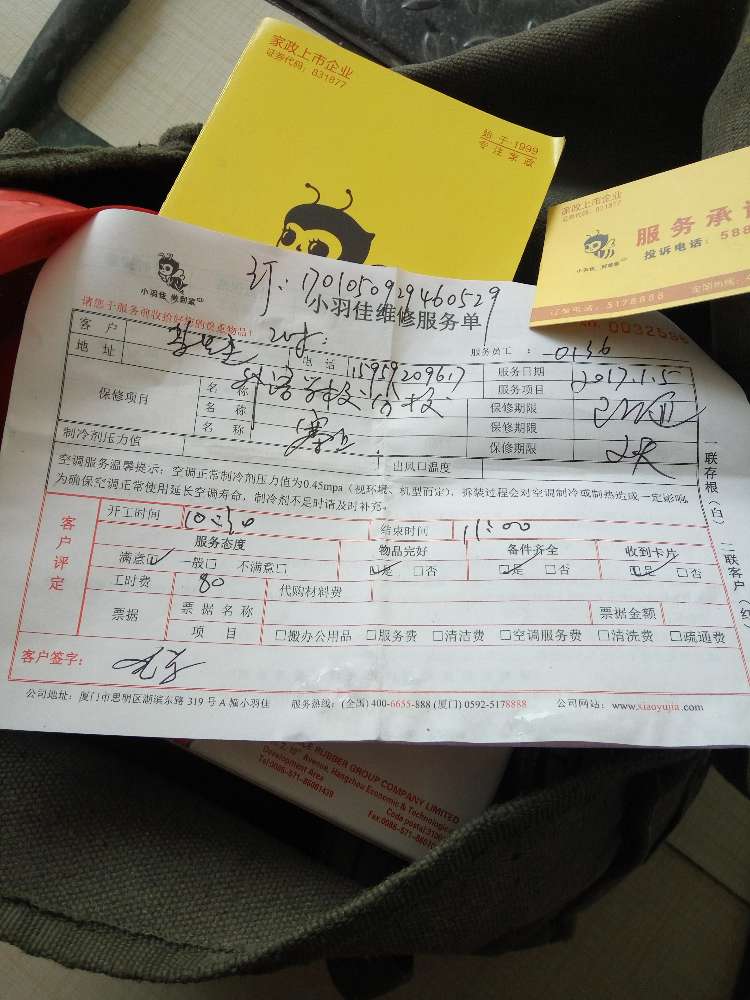 家政上市企业
证券代码：831877
始于·1999
专注家政
家政上市企业
证券代码：831877
服务承
投诉电话：588
小羽佳 帮到家
订货电话：5178888
全国热线：
小羽佳 帮到家
订：1701050929460529
小羽佳维修服务单
NO. 0032586
请您于服务前收拾好您的贵重物品！
服务员工：0136
客户
电话 15959209617
服务日期 2017.1.5
地址
服务项目
保修项目
名称
保修期限
名称
保修期限
名称
保修期限
制冷剂压力值
出风口温度
空调服务温馨提示：空调正常制冷剂压力值为0.45mpa（视环境、机型而定），拆装过程会对空调制冷或制热造成一定影响。
为确保空调正常使用延长空调寿命，制冷剂不足时请及时补充。
客户评定
开工时间 10:30
结束时间 11:00
服务态度
物品完好
备件齐全
收到卡片
满意☑ 一般□ 不满意□
☑是 □否
☑是 □否
☑是 □否
工时费 80
代购材料费
票据
票据名称
票据金额
项目
□搬办公用品 □服务费 □清洁费 □空调服务费 □清洗费 □疏通费
客户签字：
一联存根（白）
二联客户（红）
公司地址：厦门市思明区湖滨东路 319 号 A 幢小羽佳 服务热线：(全国) 400-6655-888 (厦门) 0592-5178888 公司网站：www.xiaoyujia.com
RUBBER GROUP COMPANY LIMITED
Avenue, Hangzhou Economic & Technological
Development Area
Tel:0086-571-86061439
Code postal:3100
Fax:0086-571-8607